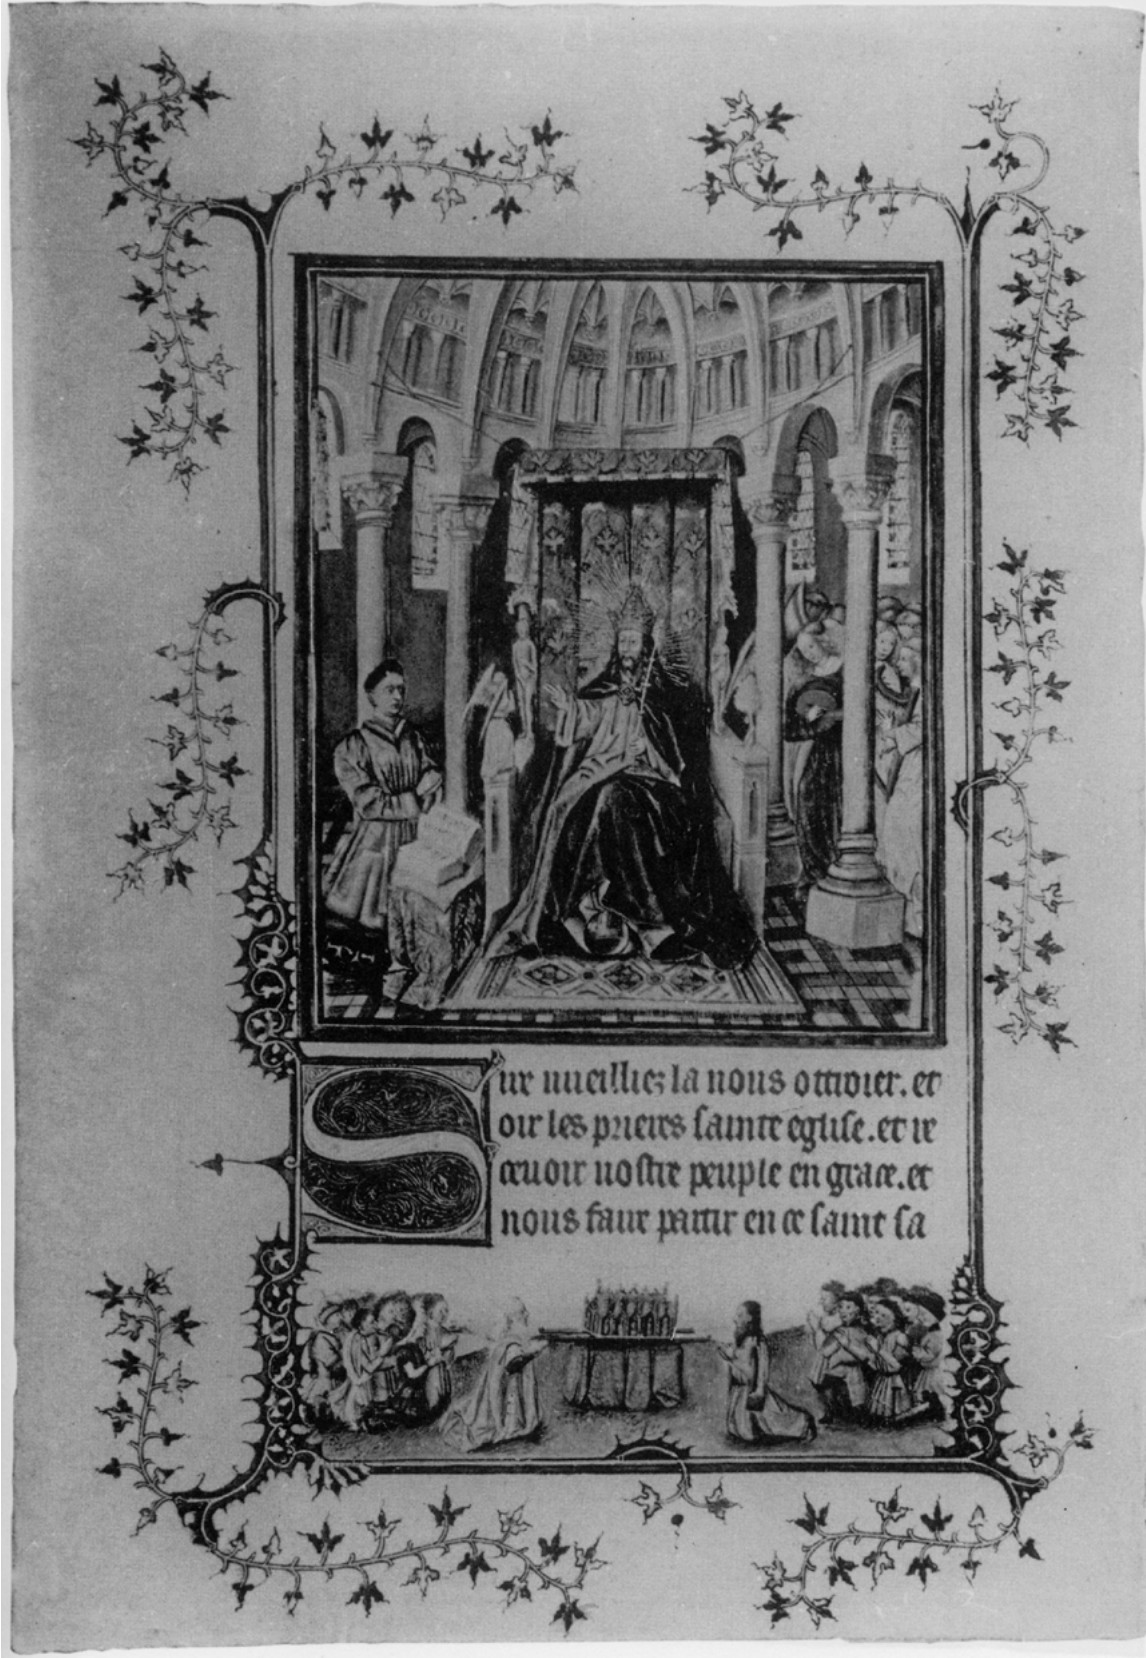 Sire vueilliez la nous ottroier. et
oir les prieres sainte eglise. et re
cevoir nostre peuple en grace. et
nous faire partir en ce saint sa